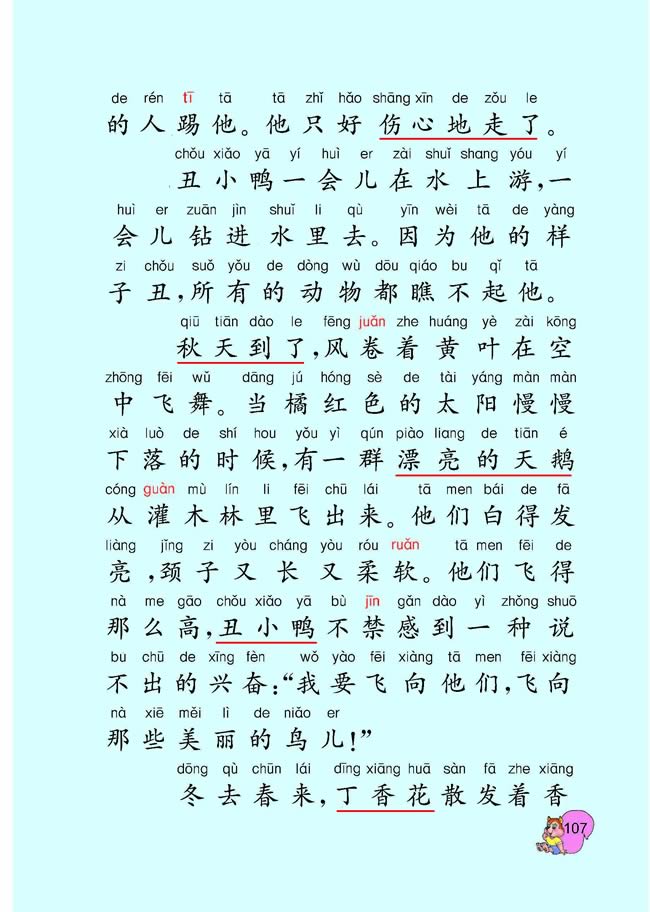 de rén tī tā tā zhǐ hǎo shāng xīn de zǒu le
的人踢他。他只好伤心地走了。
chǒu xiǎo yā yí huì er zài shuǐ shang yóu yí
丑小鸭一会儿在水上游,一
huì er zuān jìn shuǐ li qù yīn wèi tā de yàng
会儿钻进水里去。因为他的样
zi chǒu suǒ yǒu de dòng wù dōu qiáo bu qǐ tā
子丑,所有的动物都瞧不起他。
qiū tiān dào le fēng juǎn zhe huáng yè zài kōng
秋天到了,风卷着黄叶在空
zhōng fēi wǔ dāng jú hóng sè de tài yáng màn màn
中飞舞。当橘红色的太阳慢慢
xià luò de shí hou yǒu yì qún piào liang de tiān é
下落的时候,有一群漂亮的天鹅
cóng guàn mù lín li fēi chū lái tā men bái de fā
从灌木林里飞出来。他们白得发
liàng jǐng zi yòu cháng yòu róu ruǎn tā men fēi de
亮,颈子又长又柔软。他们飞得
nà me gāo chǒu xiǎo yā bù jīn gǎn dào yì zhǒng shuō
那么高,丑小鸭不禁感到一种说
bu chū de xīng fèn wǒ yào fēi xiàng tā men fēi xiàng
不出的兴奋:“我要飞向他们,飞向
nà xiē měi lì de niǎo er
那些美丽的鸟儿!”
dōng qù chūn lái dīng xiāng huā sàn fā zhe xiāng
冬去春来,丁香花散发着香
107